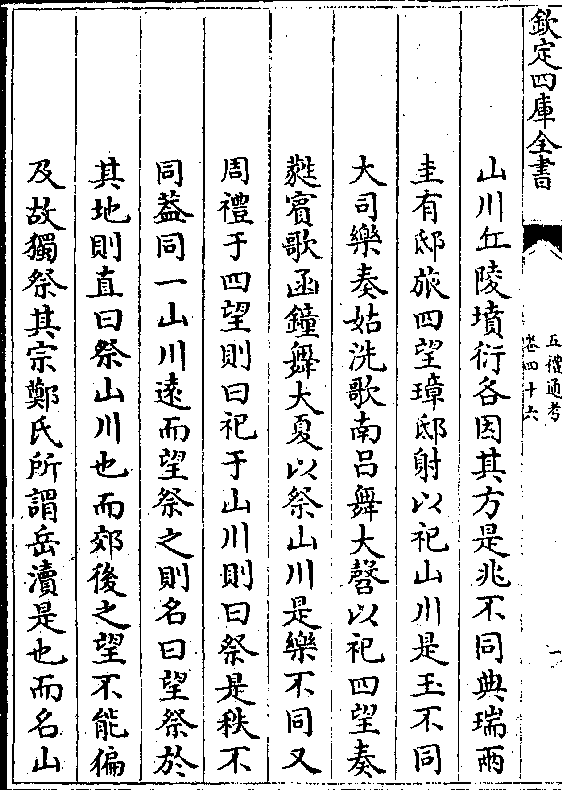 欽定四庫全書
五禮通考
卷四十六
一
山川丘陵墳衍各因其方是兆不同典瑞兩
圭有邸旅四望璋邸射以祀山川是玉不同
大司樂奏姑洗歌南吕舞大磬以祀四望奏
蕤賓歌函鐘舞大夏以祭山川是樂不同又
周禮于四望則曰祀于山川則曰祭是秩不
同葢同一山川遠而望祭之則名曰望祭於
其地則直曰祭山川也而郊後之望不能徧
及故獨祭其宗鄭氏所謂岳瀆是也而名山